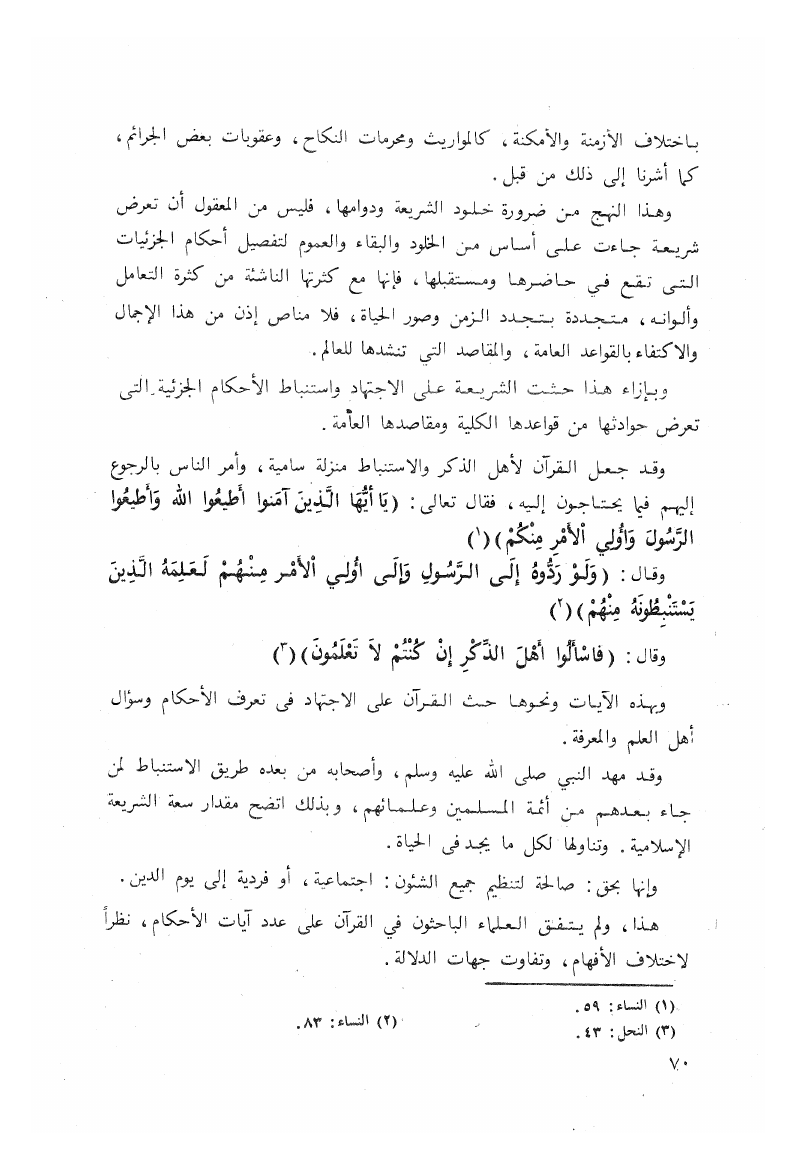 باختلاف الأزمنة والأمكنة، كالمواريث ومحرمات النكاح، وعقوبات بعض الجرائم،
كما أشرنا إلى ذلك من قبل.
وهذا النهج من ضرورة خلود الشريعة ودوامها، فليس من المعقول أن تعرض
شريعة جاءت على أساس من الخلود والبقاء والعموم لتفصيل أحكام الجزئيات
التى تقع في حاضرها ومستقبلها، فإنها مع كثرتها الناشئة من كثرة التعامل
وألوانه، متجددة بتجدد الزمن وصور الحياة، فلا مناص إذن من هذا الإجمال
والاكتفاء بالقواعد العامة، والمقاصد التي تنشدها للعالم.
وبإزاء هذا حشت الشريعة على الاجتهاد واستنباط الأحكام الجزئية التى
تعرض حوادثها من قواعدها الكلية ومقاصدها العامة.
وقد جعل القرآن لأهل الذكر والاستنباط منزلة سامية، وأمر الناس بالرجوع
إليهم فيما يحتاجون إليه، فقال تعالى: (يَا أَيُّهَا الَّذِينَ آمَنوا أَطيعُوا الله وَأَطيعُوا
الرَّسُولَ وَأُولِي الْأَمْرِ مِنْكُمْ)(١)
وقال: (وَلَوْ رَدُّوهُ إِلَى الرَّسُولِ وَإِلَى أُولِي الْأَمْرِ مِنْهُمْ لَعَلِمَهُ الَّذِينَ
يَسْتَنْبِطُونَهُ مِنْهُمْ)(٢)
وقال: (فَاسْأَلُوا أَهْلَ الذِّكْرِ إِنْ كُنْتُمْ لاَ تَعْلَمُونَ)(٣)
وبهذه الآيات ونحوها حث القرآن على الاجتهاد فى تعرف الأحكام وسؤال
أهل العلم والمعرفة.
وقد مهد النبي صلى الله عليه وسلم، وأصحابه من بعده طريق الاستنباط لمن
جاء بعدهم من أئمة المسلمين وعلمائهم، وبذلك اتضح مقدار سعة الشريعة
الإسلامية. وتناولها لكل ما يجد فى الحياة.
وإنها بحق: صالحة لتنظيم جميع الشئون: اجتماعية، أو فردية إلى يوم الدين.
هذا، ولم يتفق العلماء الباحثون في القرآن على عدد آيات الأحكام، نظراً
لاختلاف الأفهام، وتفاوت جهات الدلالة.
(١) النساء: ٥٩.
(٢) النساء: ٨٣.
(٣) النحل: ٤٣.
٧٠